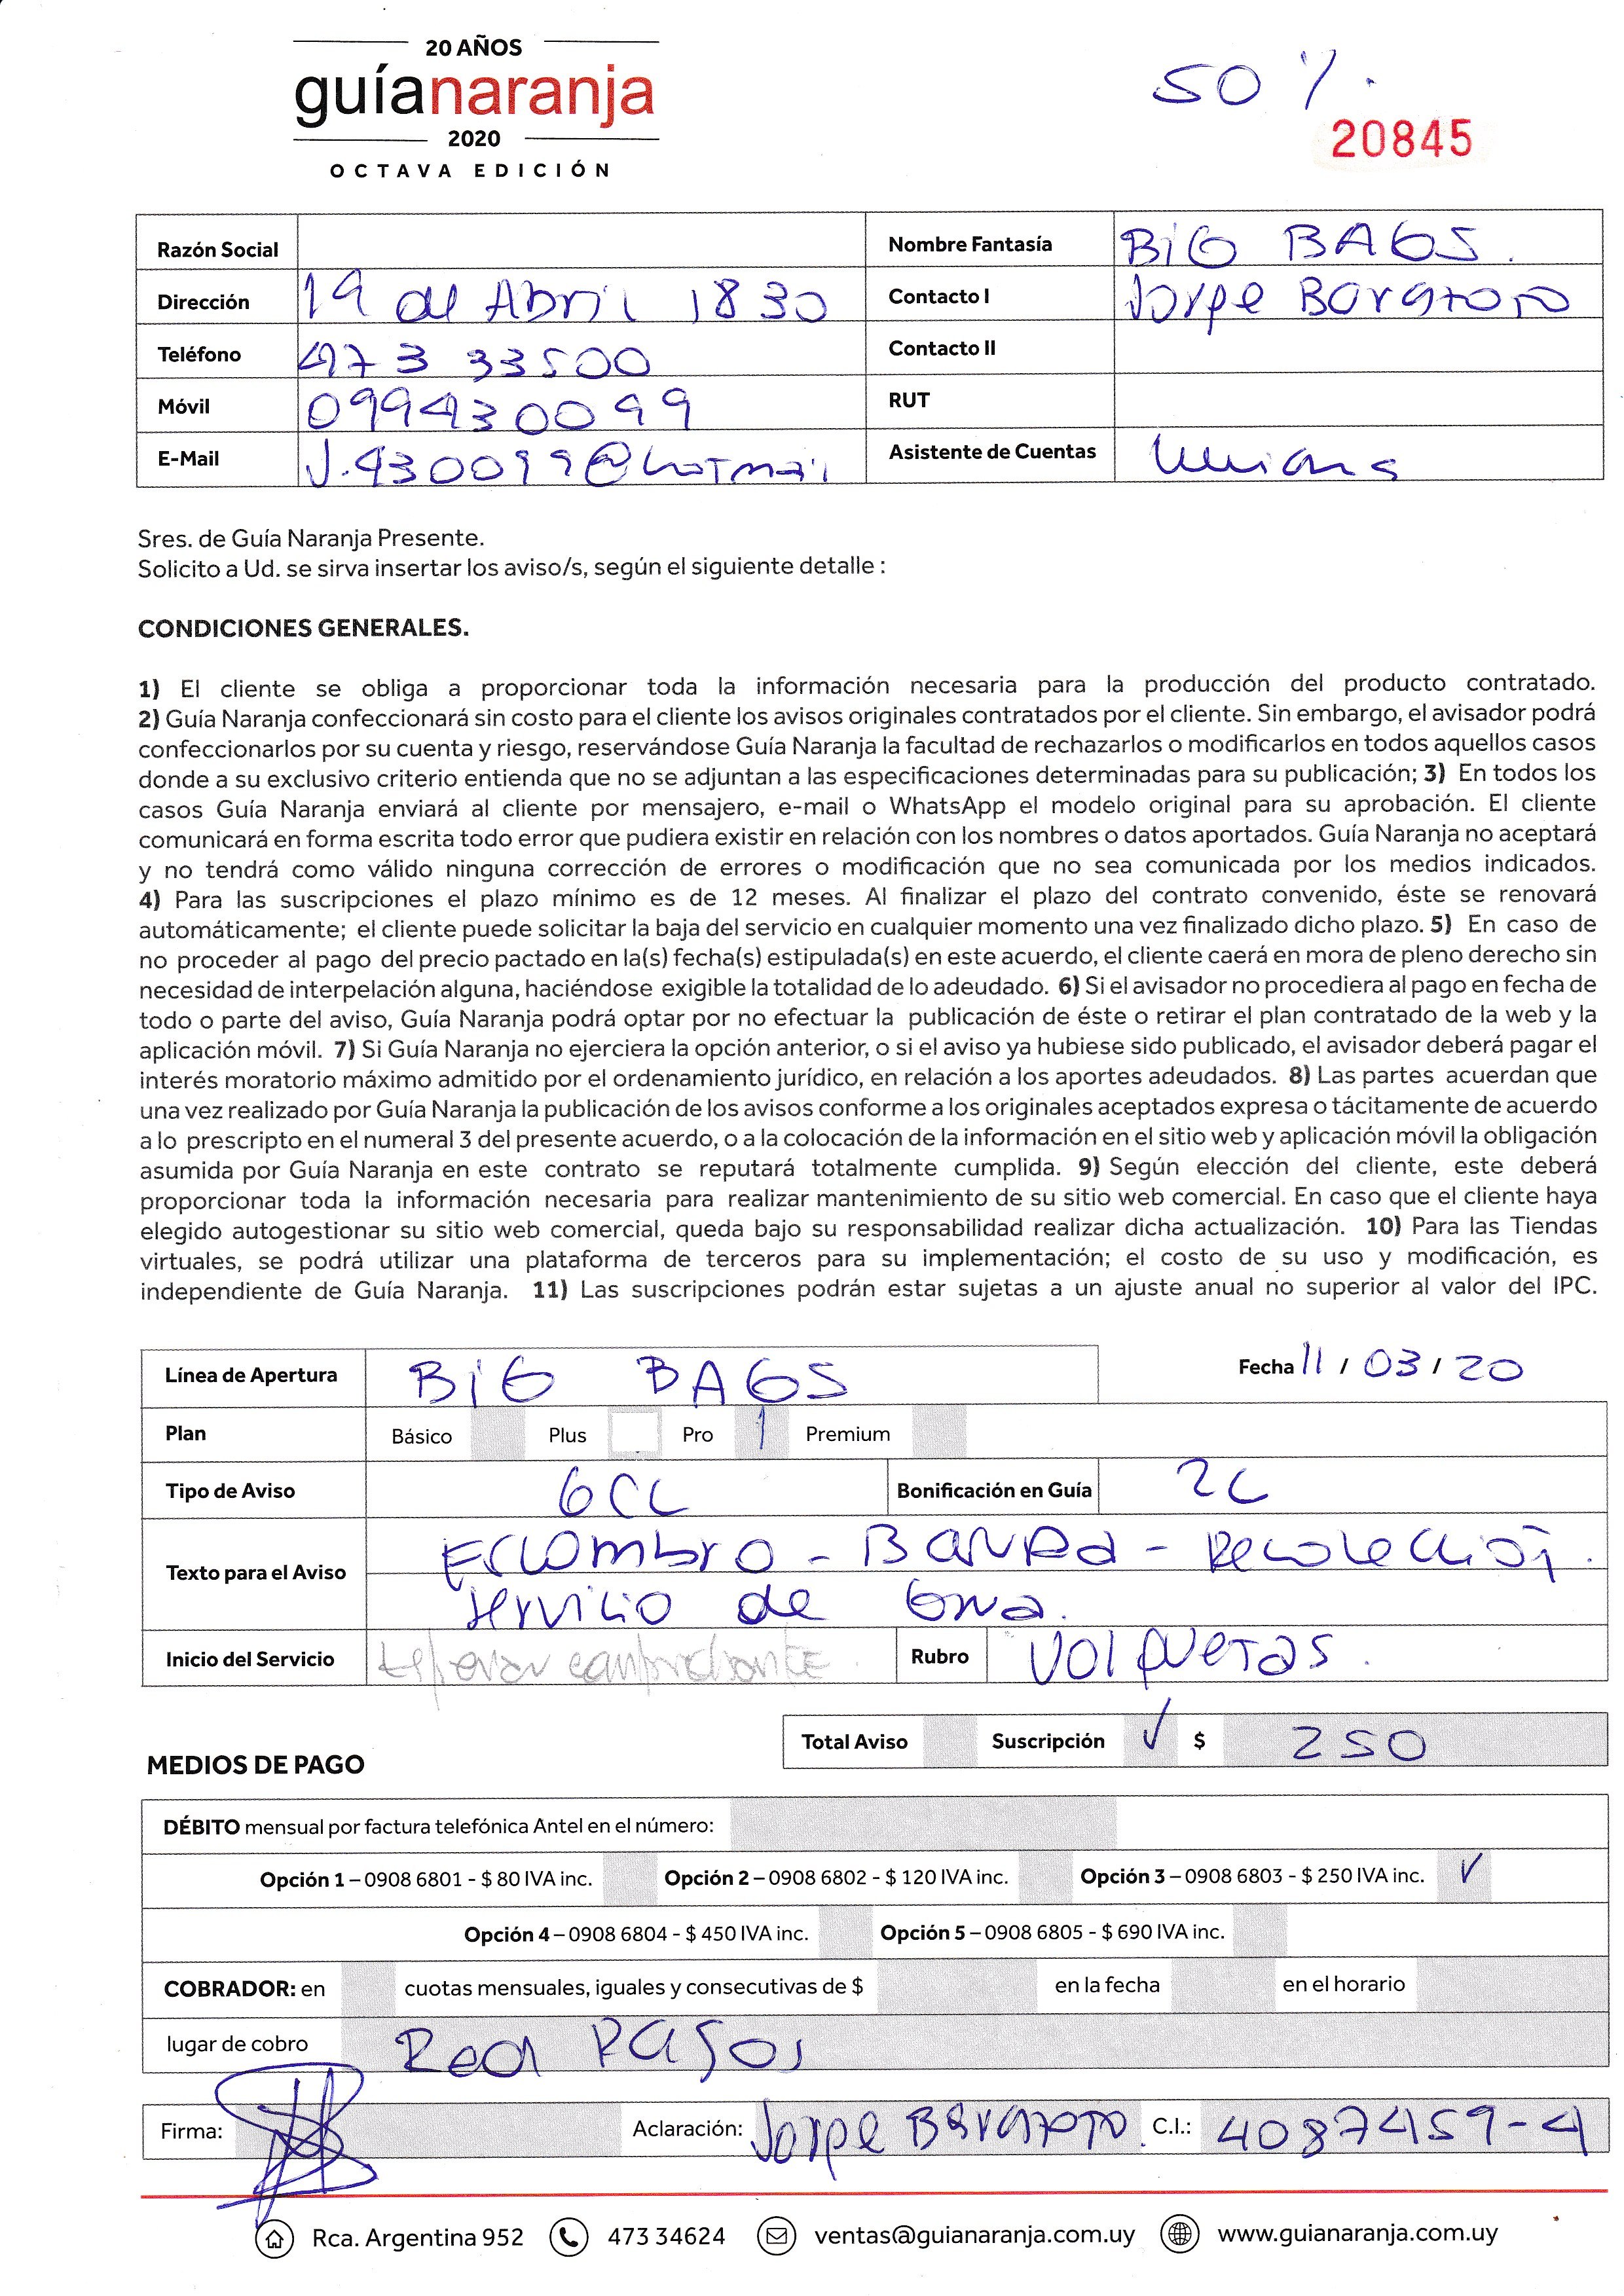 20 AÑOS
guíanaranja
2020
OCTAVA EDICIÓN
50 %.
20845
Razón Social
Nombre Fantasía BiG BAGS.
Dirección 19 de Abril 1830
Contacto I Jorge
Teléfono 473 33500
Contacto II
Móvil 099430099
RUT
E-Mail J.430099@hotmail
Asistente de Cuentas
Sres. de Guía Naranja Presente.
Solicito a Ud. se sirva insertar los aviso/s, según el siguiente detalle :
CONDICIONES GENERALES.
1) El cliente se obliga a proporcionar toda la información necesaria para la producción del producto contratado.
2) Guía Naranja confeccionará sin costo para el cliente los avisos originales contratados por el cliente. Sin embargo, el avisador podrá
confeccionarlos por su cuenta y riesgo, reservándose Guía Naranja la facultad de rechazarlos o modificarlos en todos aquellos casos
donde a su exclusivo criterio entienda que no se adjuntan a las especificaciones determinadas para su publicación; 3) En todos los
casos Guía Naranja enviará al cliente por mensajero, e-mail o WhatsApp el modelo original para su aprobación. El cliente
comunicará en forma escrita todo error que pudiera existir en relación con los nombres o datos aportados. Guía Naranja no aceptará
y no tendrá como válido ninguna corrección de errores o modificación que no sea comunicada por los medios indicados.
4) Para las suscripciones el plazo mínimo es de 12 meses. Al finalizar el plazo del contrato convenido, éste se renovará
automáticamente; el cliente puede solicitar la baja del servicio en cualquier momento una vez finalizado dicho plazo. 5) En caso de
no proceder al pago del precio pactado en la(s) fecha(s) estipulada(s) en este acuerdo, el cliente caerá en mora de pleno derecho sin
necesidad de interpelación alguna, haciéndose exigible la totalidad de lo adeudado. 6) Si el avisador no procediera al pago en fecha de
todo o parte del aviso, Guía Naranja podrá optar por no efectuar la publicación de éste o retirar el plan contratado de la web y la
aplicación móvil. 7) Si Guía Naranja no ejerciera la opción anterior, o si el aviso ya hubiese sido publicado, el avisador deberá pagar el
interés moratorio máximo admitido por el ordenamiento jurídico, en relación a los aportes adeudados. 8) Las partes acuerdan que
una vez realizado por Guía Naranja la publicación de los avisos conforme a los originales aceptados expresa o tácitamente de acuerdo
a lo prescripto en el numeral 3 del presente acuerdo, o a la colocación de la información en el sitio web y aplicación móvil la obligación
asumida por Guía Naranja en este contrato se reputará totalmente cumplida. 9) Según elección del cliente, este deberá
proporcionar toda la información necesaria para realizar mantenimiento de su sitio web comercial. En caso que el cliente haya
elegido autogestionar su sitio web comercial, queda bajo su responsabilidad realizar dicha actualización. 10) Para las Tiendas
virtuales, se podrá utilizar una plataforma de terceros para su implementación; el costo de su uso y modificación, es
independiente de Guía Naranja. 11) Las suscripciones podrán estar sujetas a un ajuste anual no superior al valor del IPC.
Línea de Apertura BiG BAGS
Fecha 11 / 03 / 20
Plan Básico Plus Pro Premium
Tipo de Aviso 6CL Bonificación en Guía 2C
Texto para el Aviso Escombro - Barrda - Recolección.
servicio de Grua.
Inicio del Servicio esperar comprobante Rubro Volquetas.
Total Aviso Suscripción ✓ $ 250
MEDIOS DE PAGO
DÉBITO mensual por factura telefónica Antel en el número:
Opción 1 – 0908 6801 - $ 80 IVA inc. Opción 2 – 0908 6802 - $ 120 IVA inc. Opción 3 – 0908 6803 - $ 250 IVA inc. ✓
Opción 4 – 0908 6804 - $ 450 IVA inc. Opción 5 – 0908 6805 - $ 690 IVA inc.
COBRADOR: en cuotas mensuales, iguales y consecutivas de $ en la fecha en el horario
lugar de cobro Red Pagos
Firma: Aclaración: Jorge C.I.: 4087459-4
Rca. Argentina 952 473 34624 ventas@guianaranja.com.uy www.guianaranja.com.uy